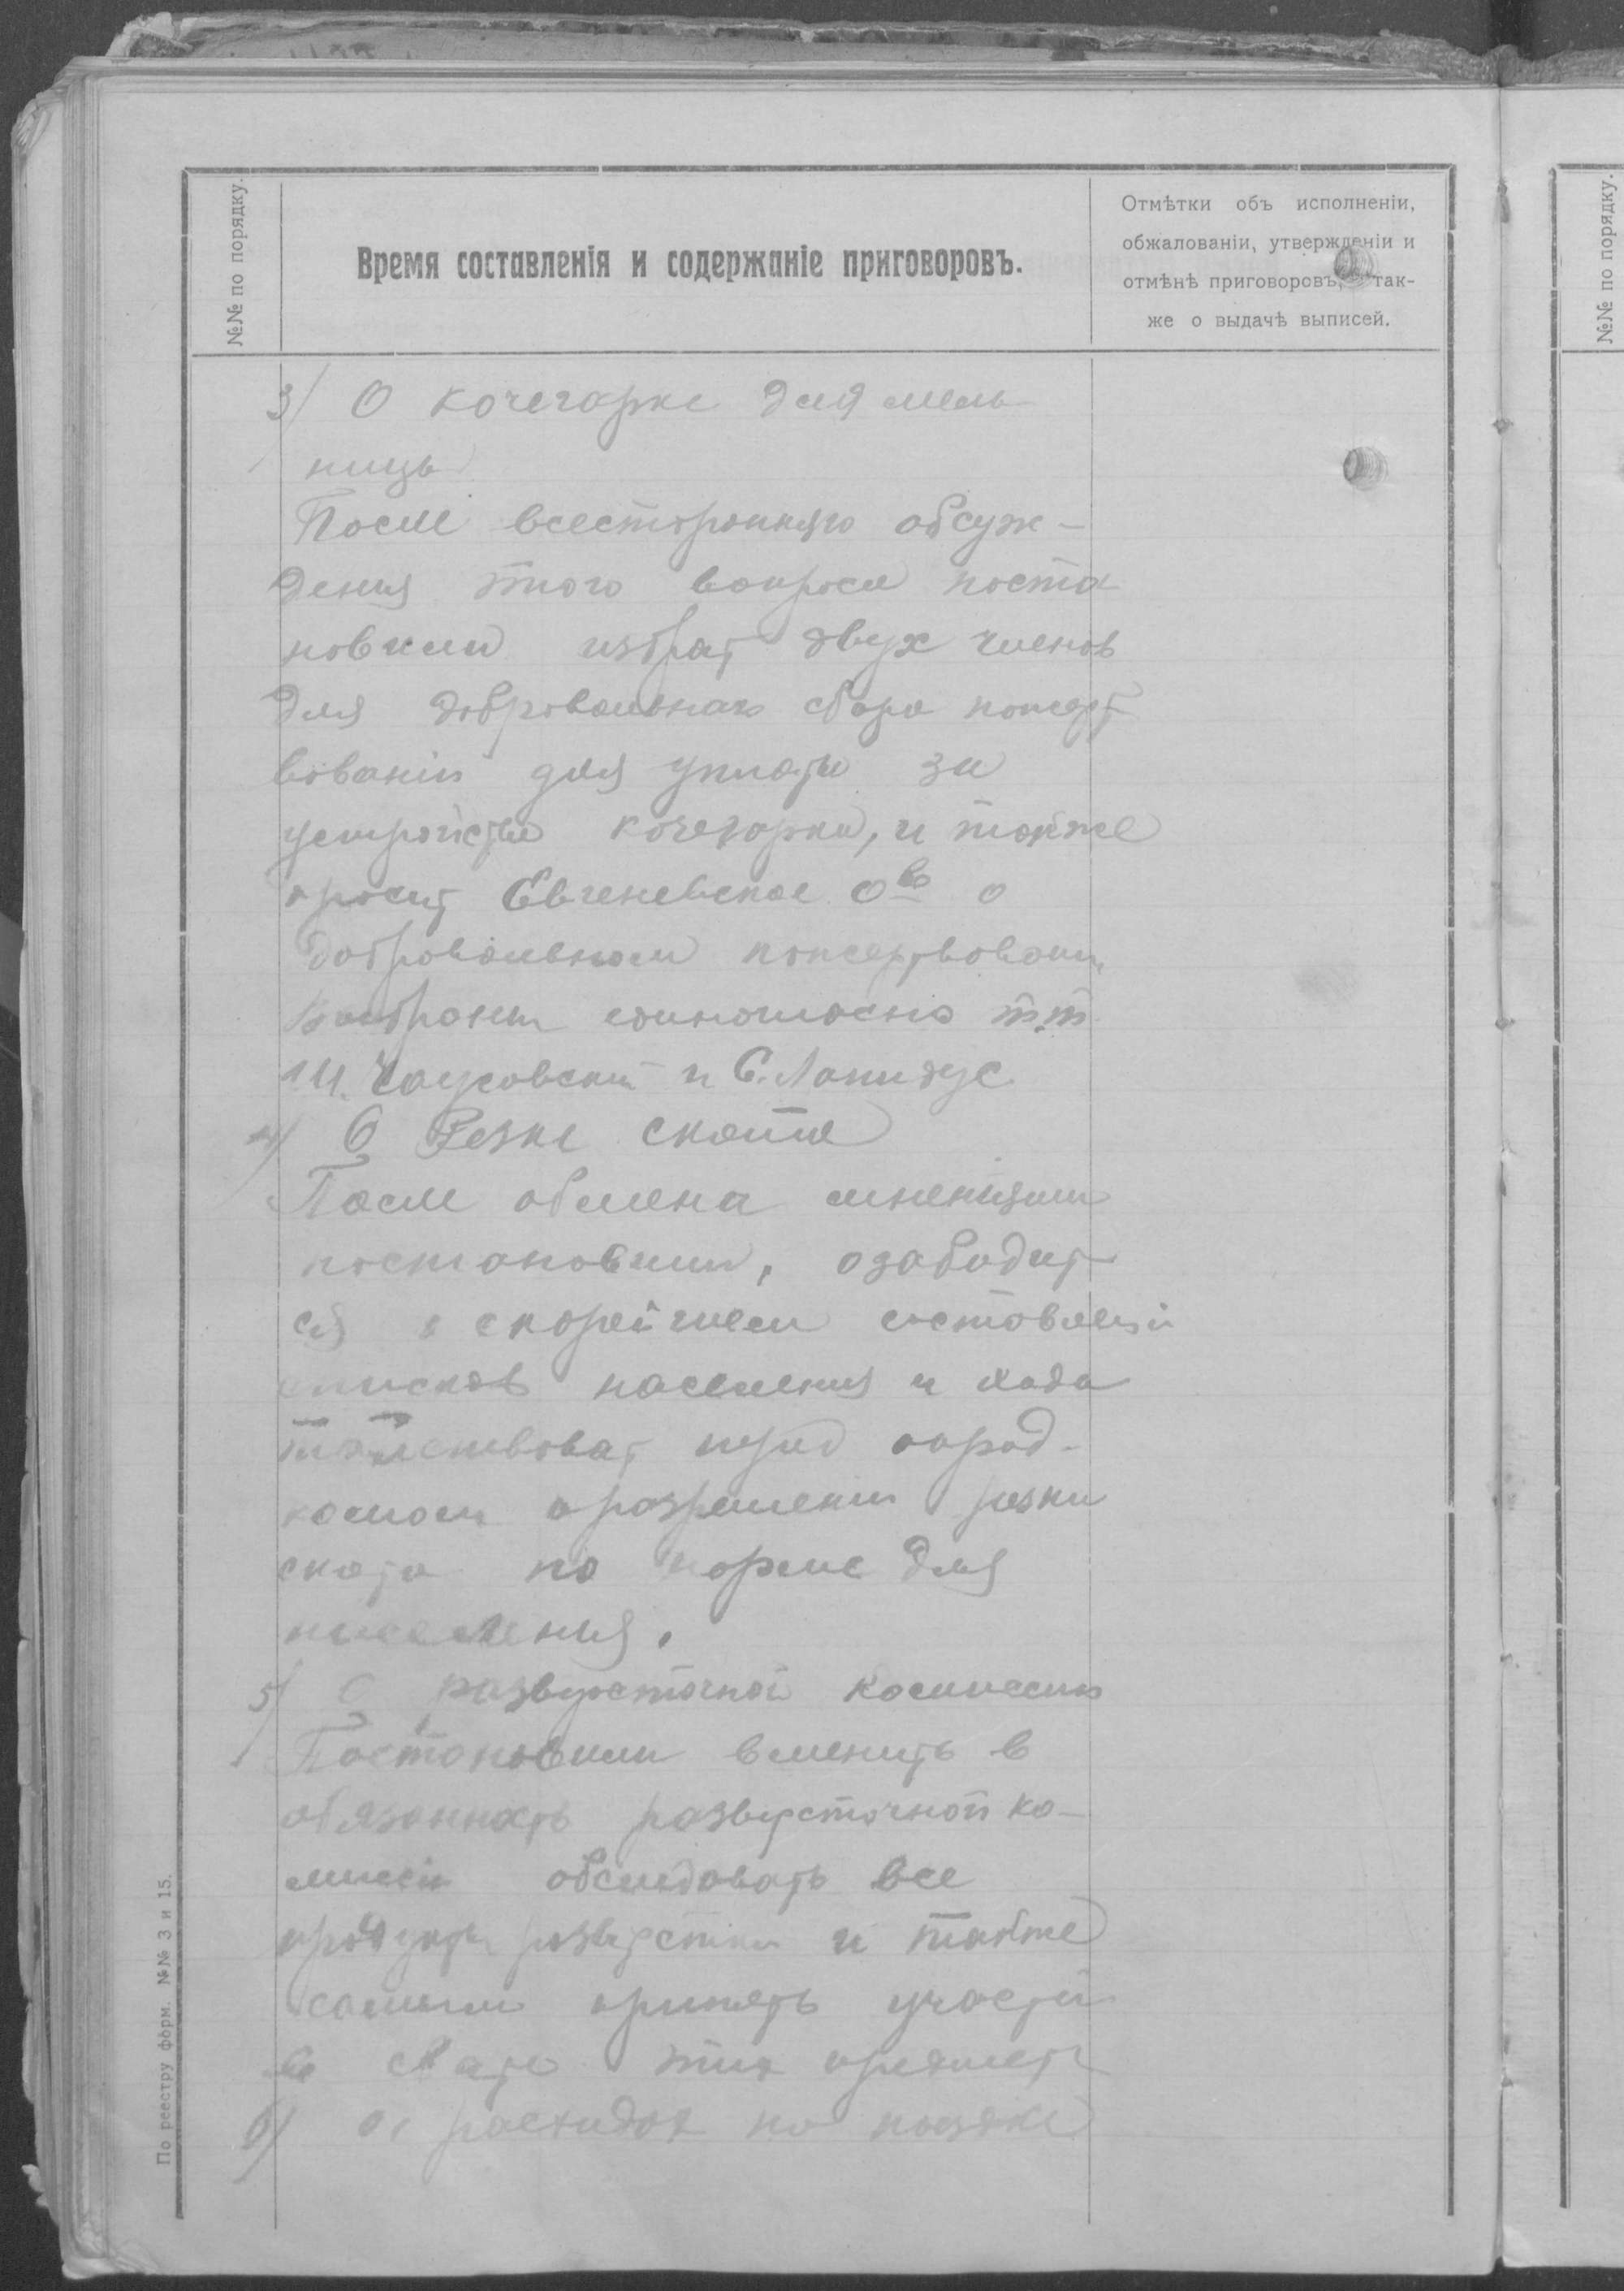 №№ по порядку.
Время составленія и содержаніе приговоровъ.
Отмѣтки объ исполненіи,
обжалованіи, утвержденіи и
отмѣнѣ приговоровъ, так-
же о выдачѣ выписей.
№№ по порядку.
3) О кочегарке для мель-
ницы
После всестороннего обсуж-
дения этого вопроса поста
новили избрат двух членов
для добровольнаго сбора пожерт
вованiи для уплаты за
устройства кочегарки, и также
просит Евгеневское Ово о
добровольном пожертвовании
единогласно т.т.
и С. Лапидус
4) О Резке скота
После обмена мнениями
постановили, озаботит
ся о скорейшем составлении
списков населения и хода
тайствовать перед опрод-
комом о разрешении резки
скота по норме для
населения.
5) О разверсточной комиссии
Постановили вменить в
обязанность разверсточной ко-
миссии обследовать все
продукты разверстки и также
самим принять участи
в этих
6) О расходах по поездке
По реестру форм. №№ 3 и 15.